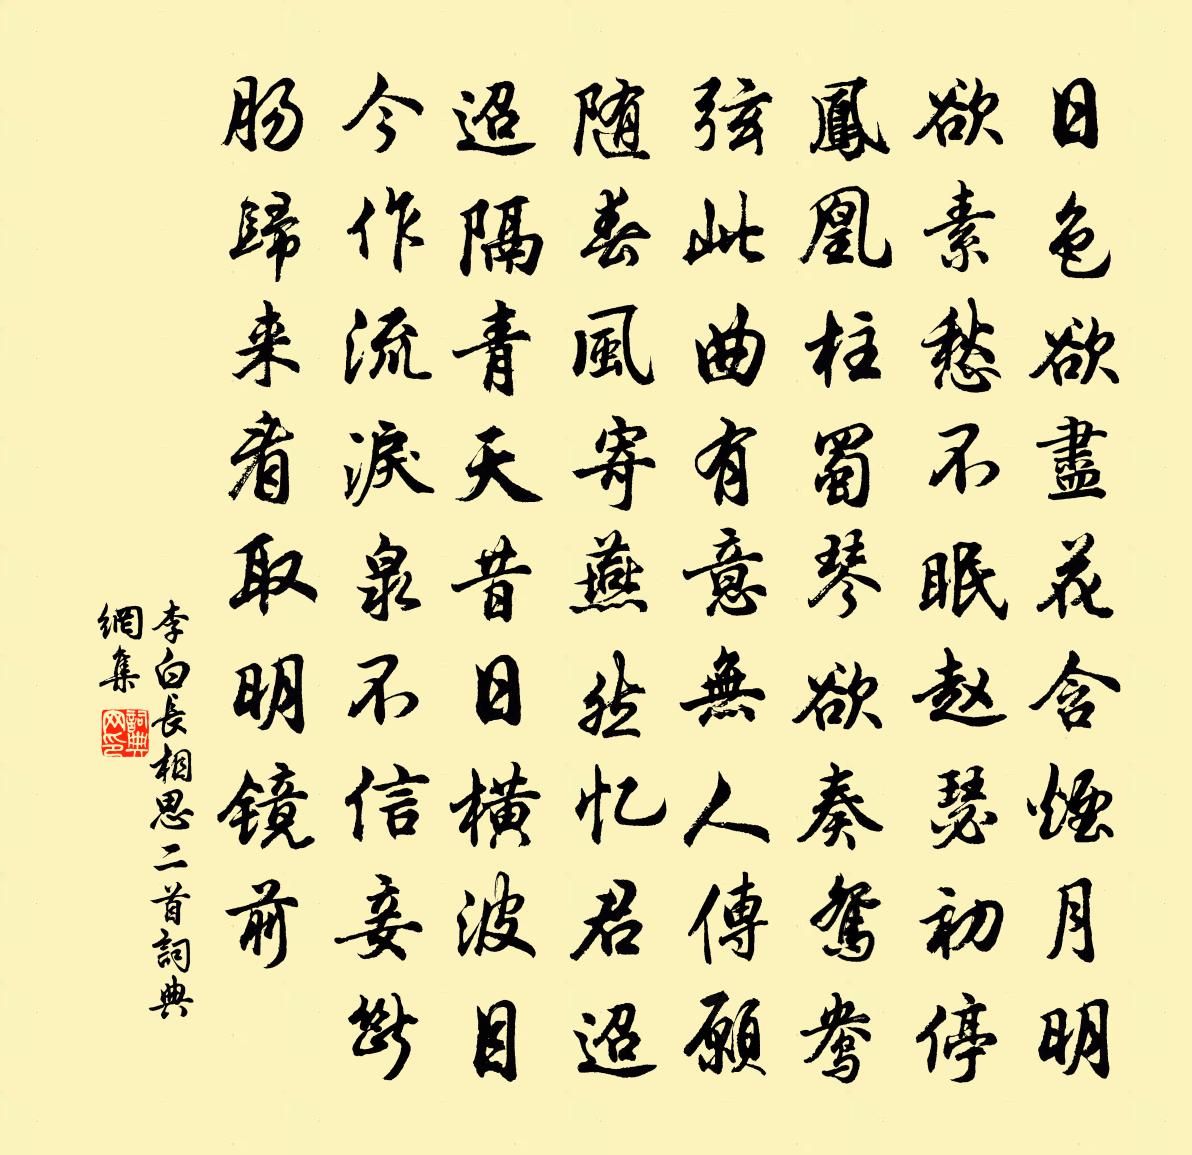 日色欲盡花含煙月明
欲素愁不眠赵瑟初停
鳳凰柱蜀琴欲奏鴛鴦
弦此曲有意無人傳願
随春風寄燕然忆君迢
迢隔青天昔日橫波目
今作流淚泉不信妾斷
肠歸来看取明镜前
李白長相思二首詞典
網集
詞典
网印